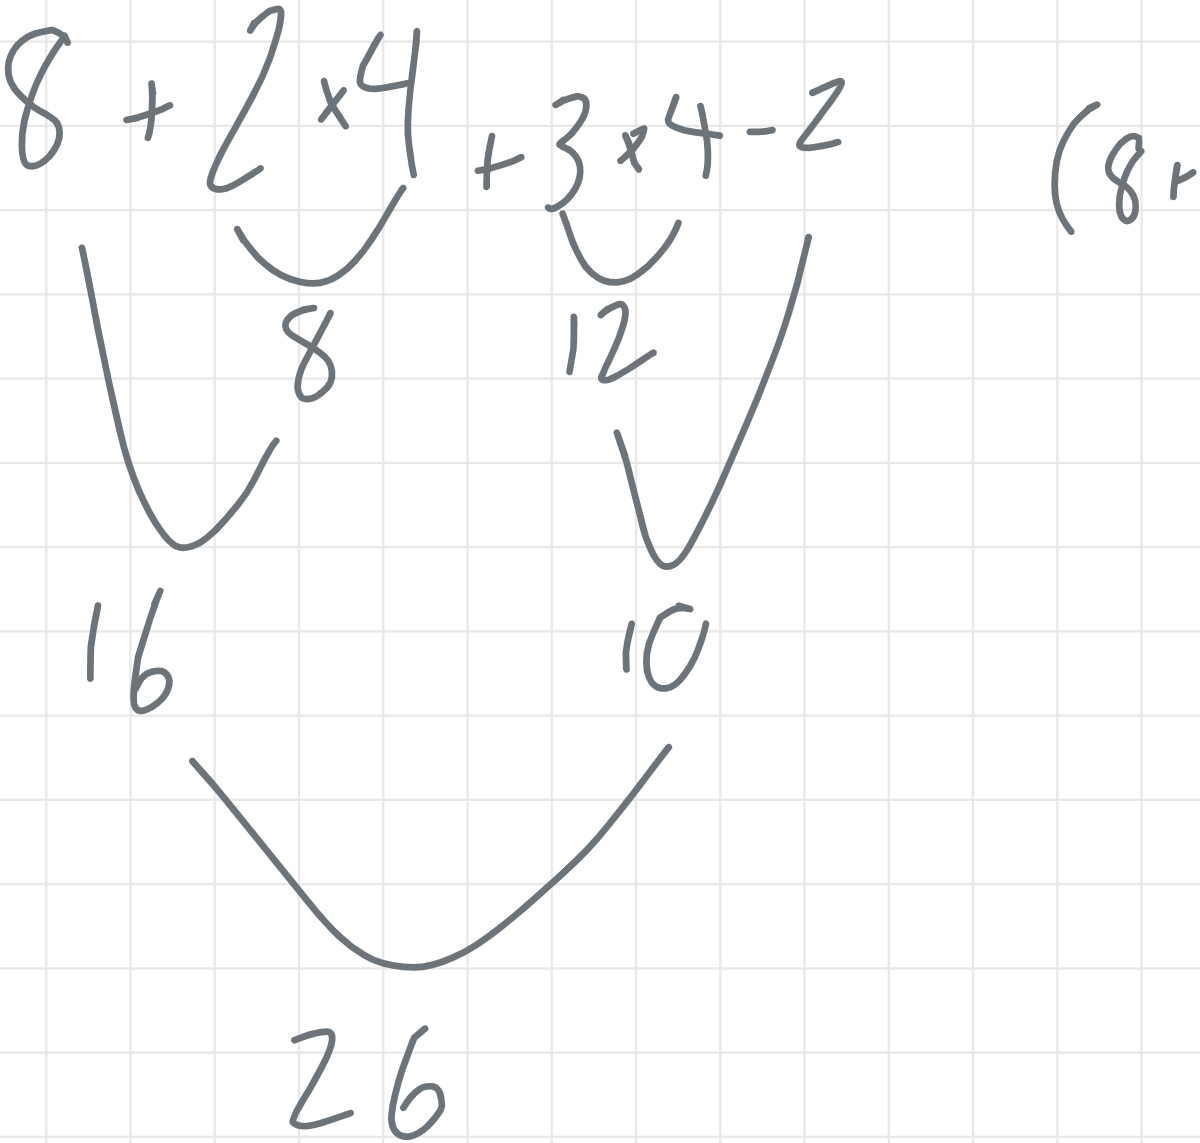 8 + 2 x 4 + 3 x 4 - 2 (8 +
8 12
16 10
26